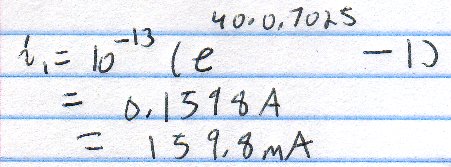 i₁ = 10⁻¹³ (e^40·0.7025 - 1)
= 0.1598 A
= 159.8 mA